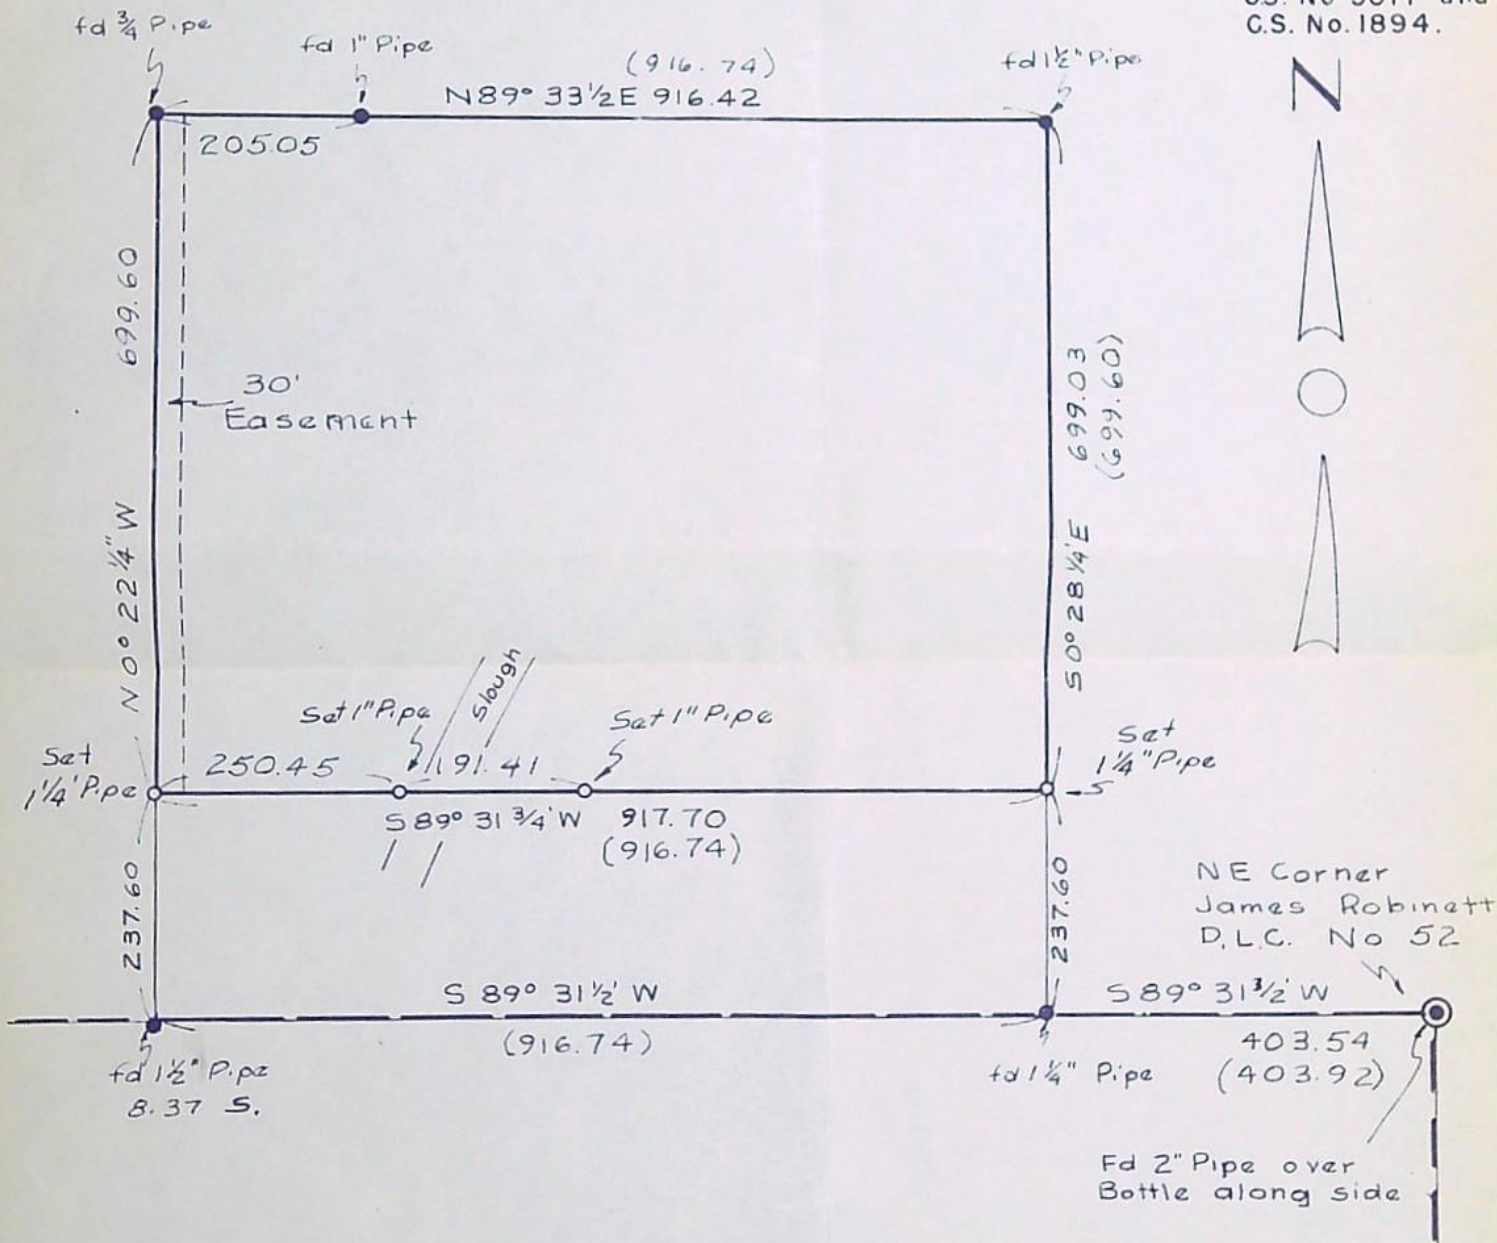 C.S. No. 1894.
fd ¾ Pipe
fd 1" Pipe
(916.74)
fd 1½" Pipe
N
N89° 33½ E 916.42
205.05
699.60
699.03
(699.60)
30'
Easement
N 0° 22¼" W
S 0° 28¼' E
Slough
Set 1" Pipe
Set 1" Pipe
Set
1¼' Pipe
250.45
191.41
Set
1¼" Pipe
S 89° 31¾' W 917.70
(916.74)
237.60
237.60
NE Corner
James Robinett
D.L.C. No 52
S 89° 31½' W
S 89° 31½' W
(916.74)
403.54
(403.92)
fd 1½" Pipe
8.37 S.
fd 1¼" Pipe
Fd 2" Pipe over
Bottle along side